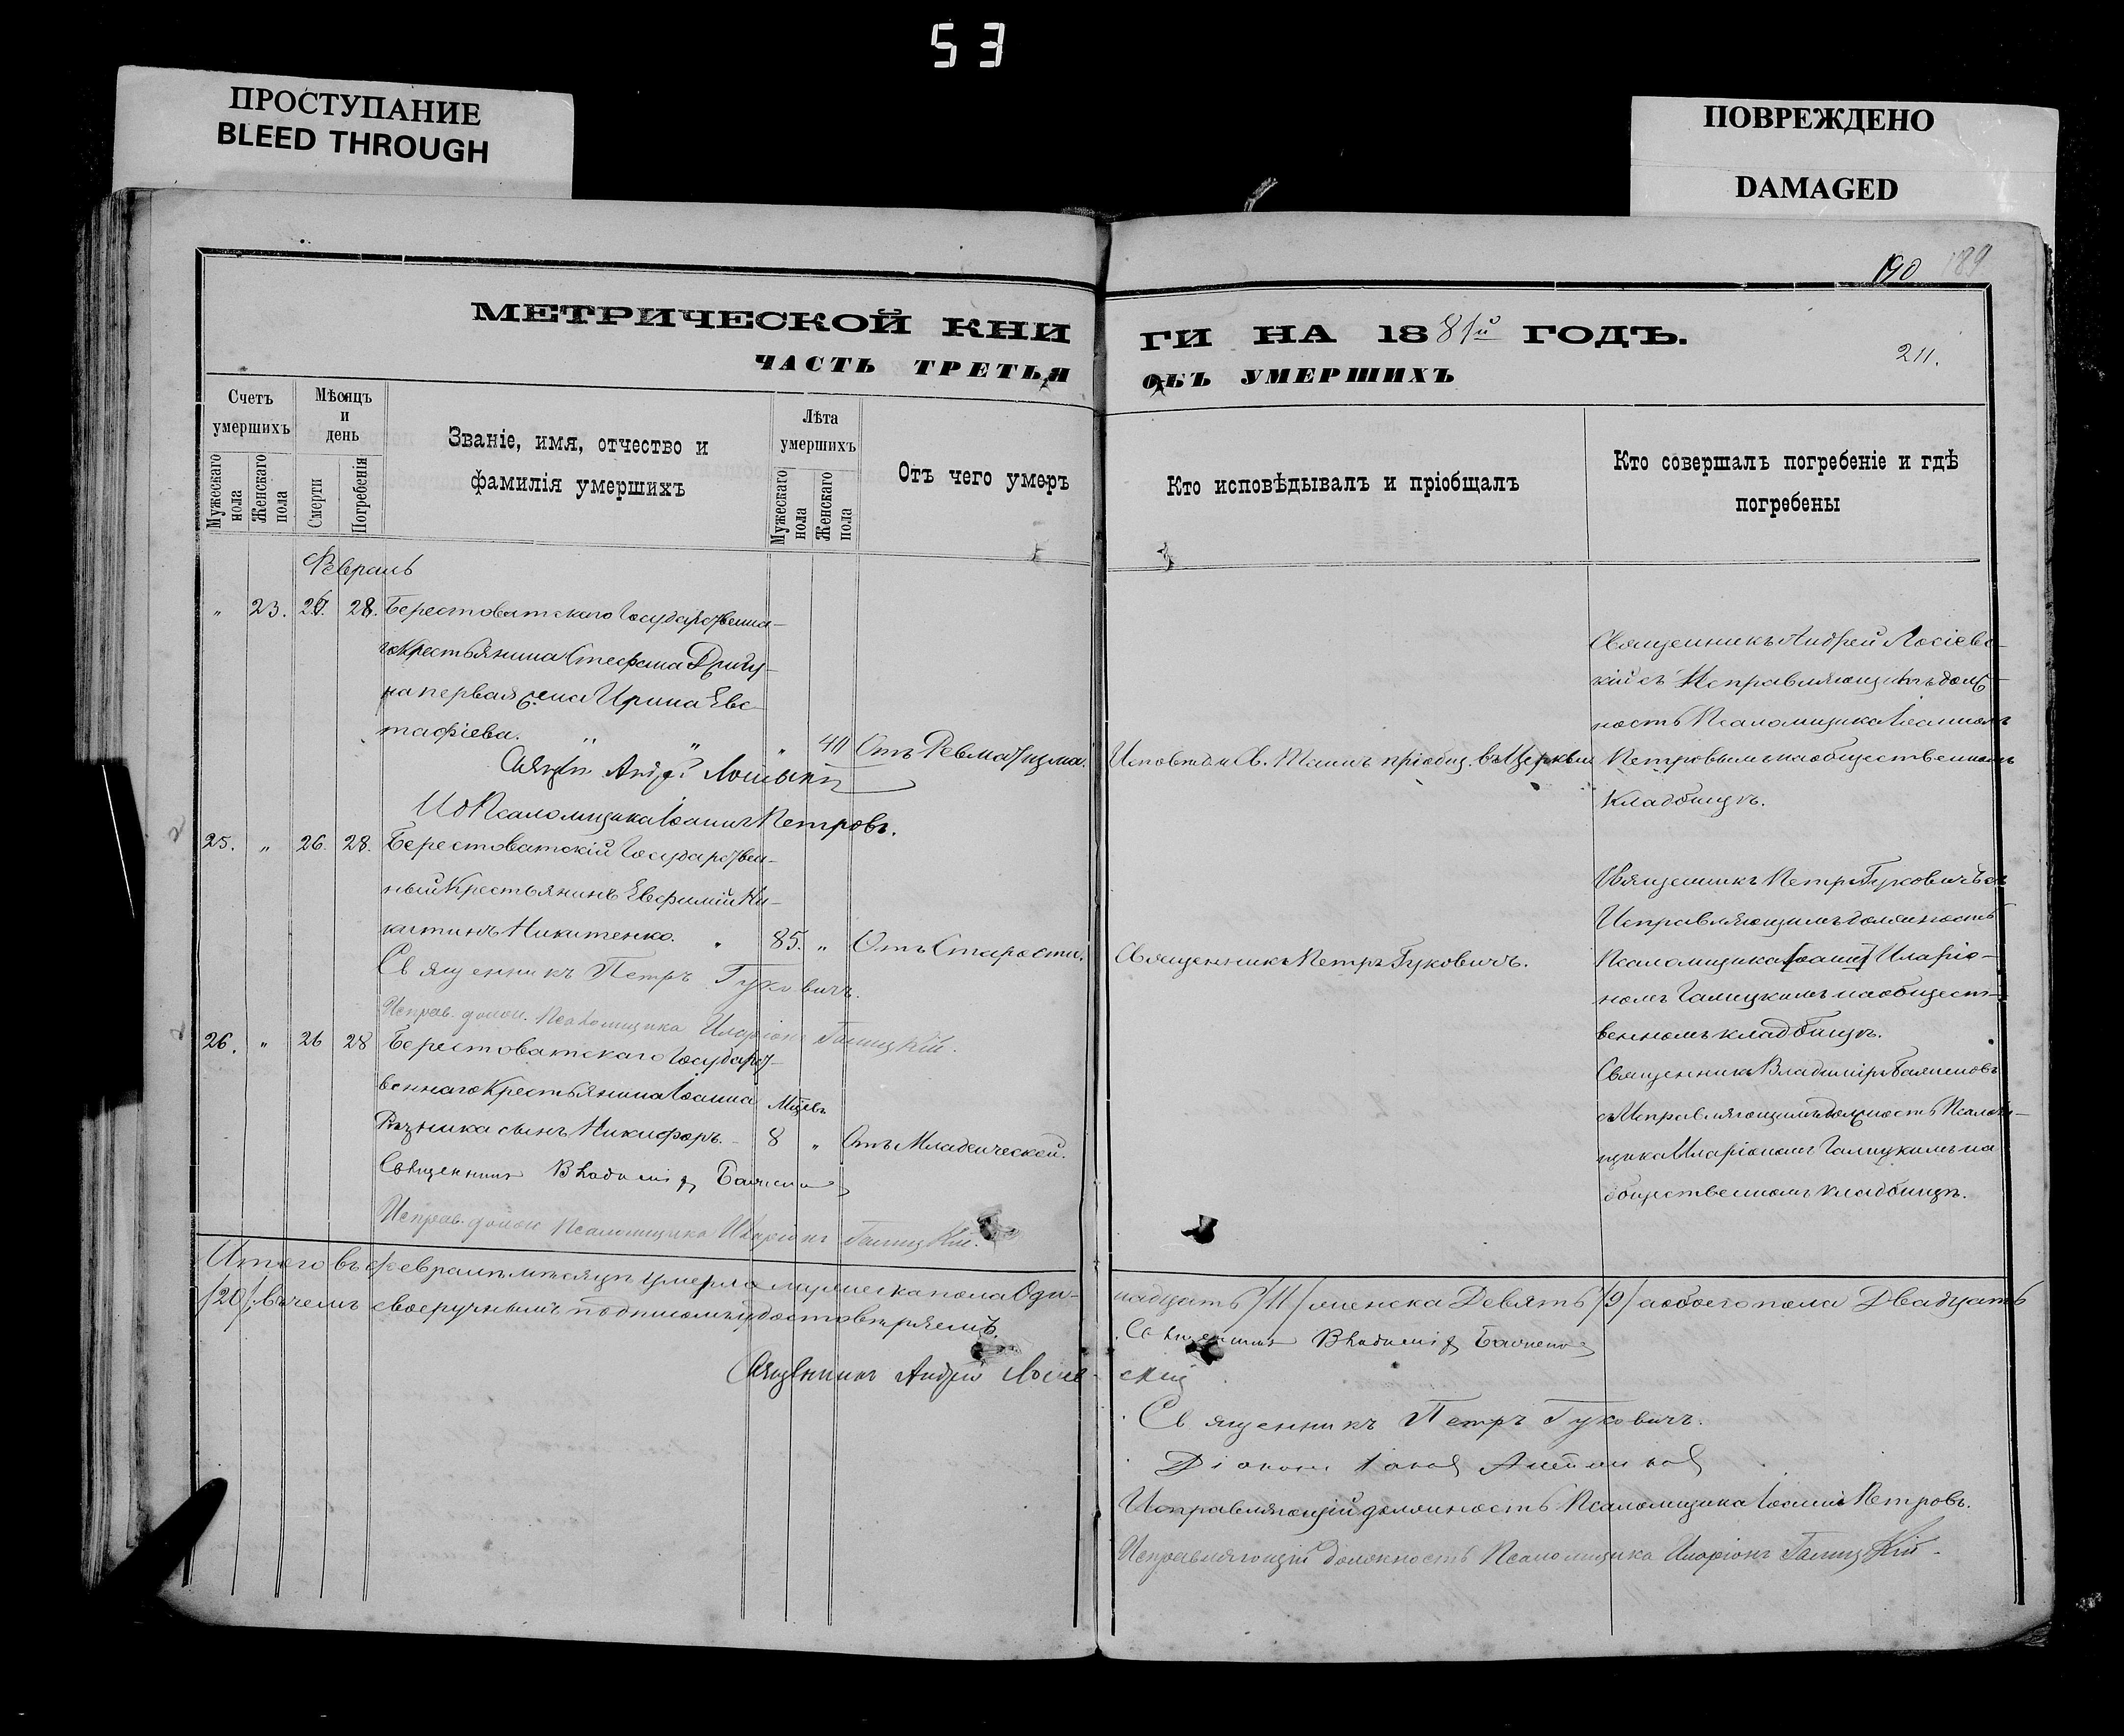 53
ПРОСТУПАНИЕ
BLEED THROUGH
ПОВРЕЖДЕНО
DAMAGED
190 189
МЕТРИЧЕСКОЙ КНИ
ГИ НА 1881й ГОДЪ.
ЧАСТЬ ТРЕТЬЯ
ОБЪ УМЕРШИХЪ
211.
Счетъ
умершихъ
Мужескаго
пола
Женскаго
пола
Мѣсяцъ
и
день
Смерти
Погребенія
Званіе, имя, отчество и
фамилія умершихъ
Лѣта
умершихъ
Мужескаго
пола
Женскаго
пола
Отъ чего умеръ
Кто исповѣдывалъ и пріобщалъ
Кто совершалъ погребеніе и гдѣ
погребены
Февраль
" 23. 28. Берестоватскаго Государственна-
го Крестьянина Стефана Дригу-
на первая жена Ирина Евс-
тафіева. " " " 40 Отъ Ревматизма.
Андрей
И д Псаломщика Іоаннъ Петровъ.
Исповѣд. и Св. Таинъ пріобщ. въ Церкви
Священникъ Андрей Лосіевс-
кій съ Исправляющимъ долж-
ность Псаломщика Іоанномъ
Петровымъ на общественномъ
кладбищѣ.
25. " 26. 28. Берестоватскій Государствен-
ный Крестьянинъ Евфимій Ни-
китинъ Никитенко. " 85. " Отъ Старости.
Священникъ Петръ Гуковичъ.
Исправ. долж. Псаломщика Иларіонъ Галицкій.
Священникъ Петръ Гуковичъ.
Священникъ Петръ Гуковичъ съ
Исправляющимъ должность
Псаломщика Иларіо-
номъ Галицкимъ на общест-
венномъ кладбищѣ.
26. " 26 28 Берестоватскаго Государст-
веннаго Крестьянина Іоанна Мѣсев
Рѣзника сынъ Никифоръ. - 8 " Отъ Младенческой.
Священникъ Владиміръ
Исправ. долж. Псаломщика Иларіонъ Галицкій.
Священникъ Владиміръ
съ Исправляющимъ должность Псалом-
щика Иларіономъ Галицкимъ на
общественномъ кладбищѣ.
Итого въ февралѣ мѣсяцѣ умерло мужеска пола Оди-
надцать /11/ женска Девять /9/ а обоего пола Двадцать
/20/ въ чемъ своеручнымъ подписомъ удостовѣряемъ.
Священникъ Владиміръ
Священникъ Андрей Лосіев-
скій
Священникъ Петръ Гуковичъ.
Діаконъ
Исправляющій должность Псаломщика Іоаннъ Петровъ.
Исправляющій должность Псаломщика Иларіонъ Галицкій.